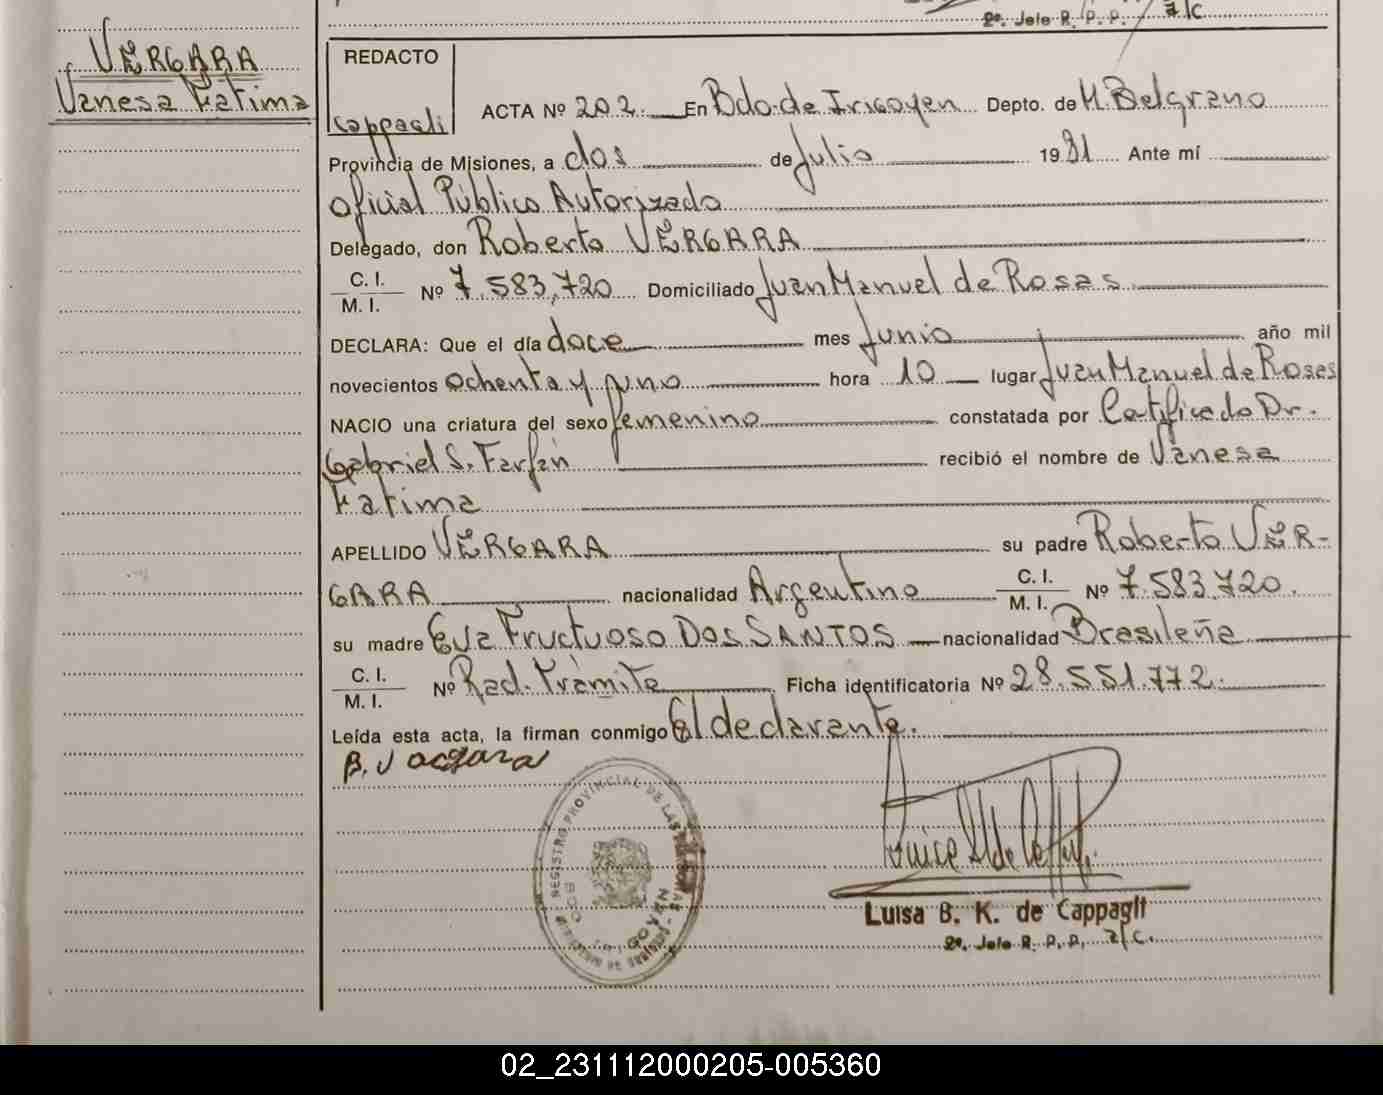 2º. Jefe R. P. P. a/c
VERGARA
Vanesa Fatima
REDACTO
Cappagli
ACTA Nº 202. En Bdo. de Irigoyen Depto. de M. Belgrano
Provincia de Misiones, a dos de Julio 1981 Ante mí
Oficial Público Autorizado
Delegado, don Roberto VERGARA
C. I.
M. I. Nº 7.583,720 Domiciliado Juan Manuel de Rosas
DECLARA: Que el día doce mes Junio año mil
novecientos ochenta y uno hora 10 lugar Juan Manuel de Rosas
NACIO una criatura del sexo femenino constatada por Certificado Dr.
Gabriel S. Farfán recibió el nombre de Vanesa
Fatima
APELLIDO VERGARA su padre Roberto VER-
GARA nacionalidad Argentino C. I.
M. I. Nº 7.583.720.
su madre Eva Fructuoso DOS SANTOS nacionalidad Brasileña
C. I.
M. I. Nº Rad. Trámite Ficha identificatoria Nº 28.551.772.
Leída esta acta, la firman conmigo El declarante.
REGISTRO PROVINCIAL DE LAS PERSONAS
BDO. IRIGOYEN
Luisa B. K. de Cappagli
2º. Jefe R. P. P. a/c.
02_231112000205-005360